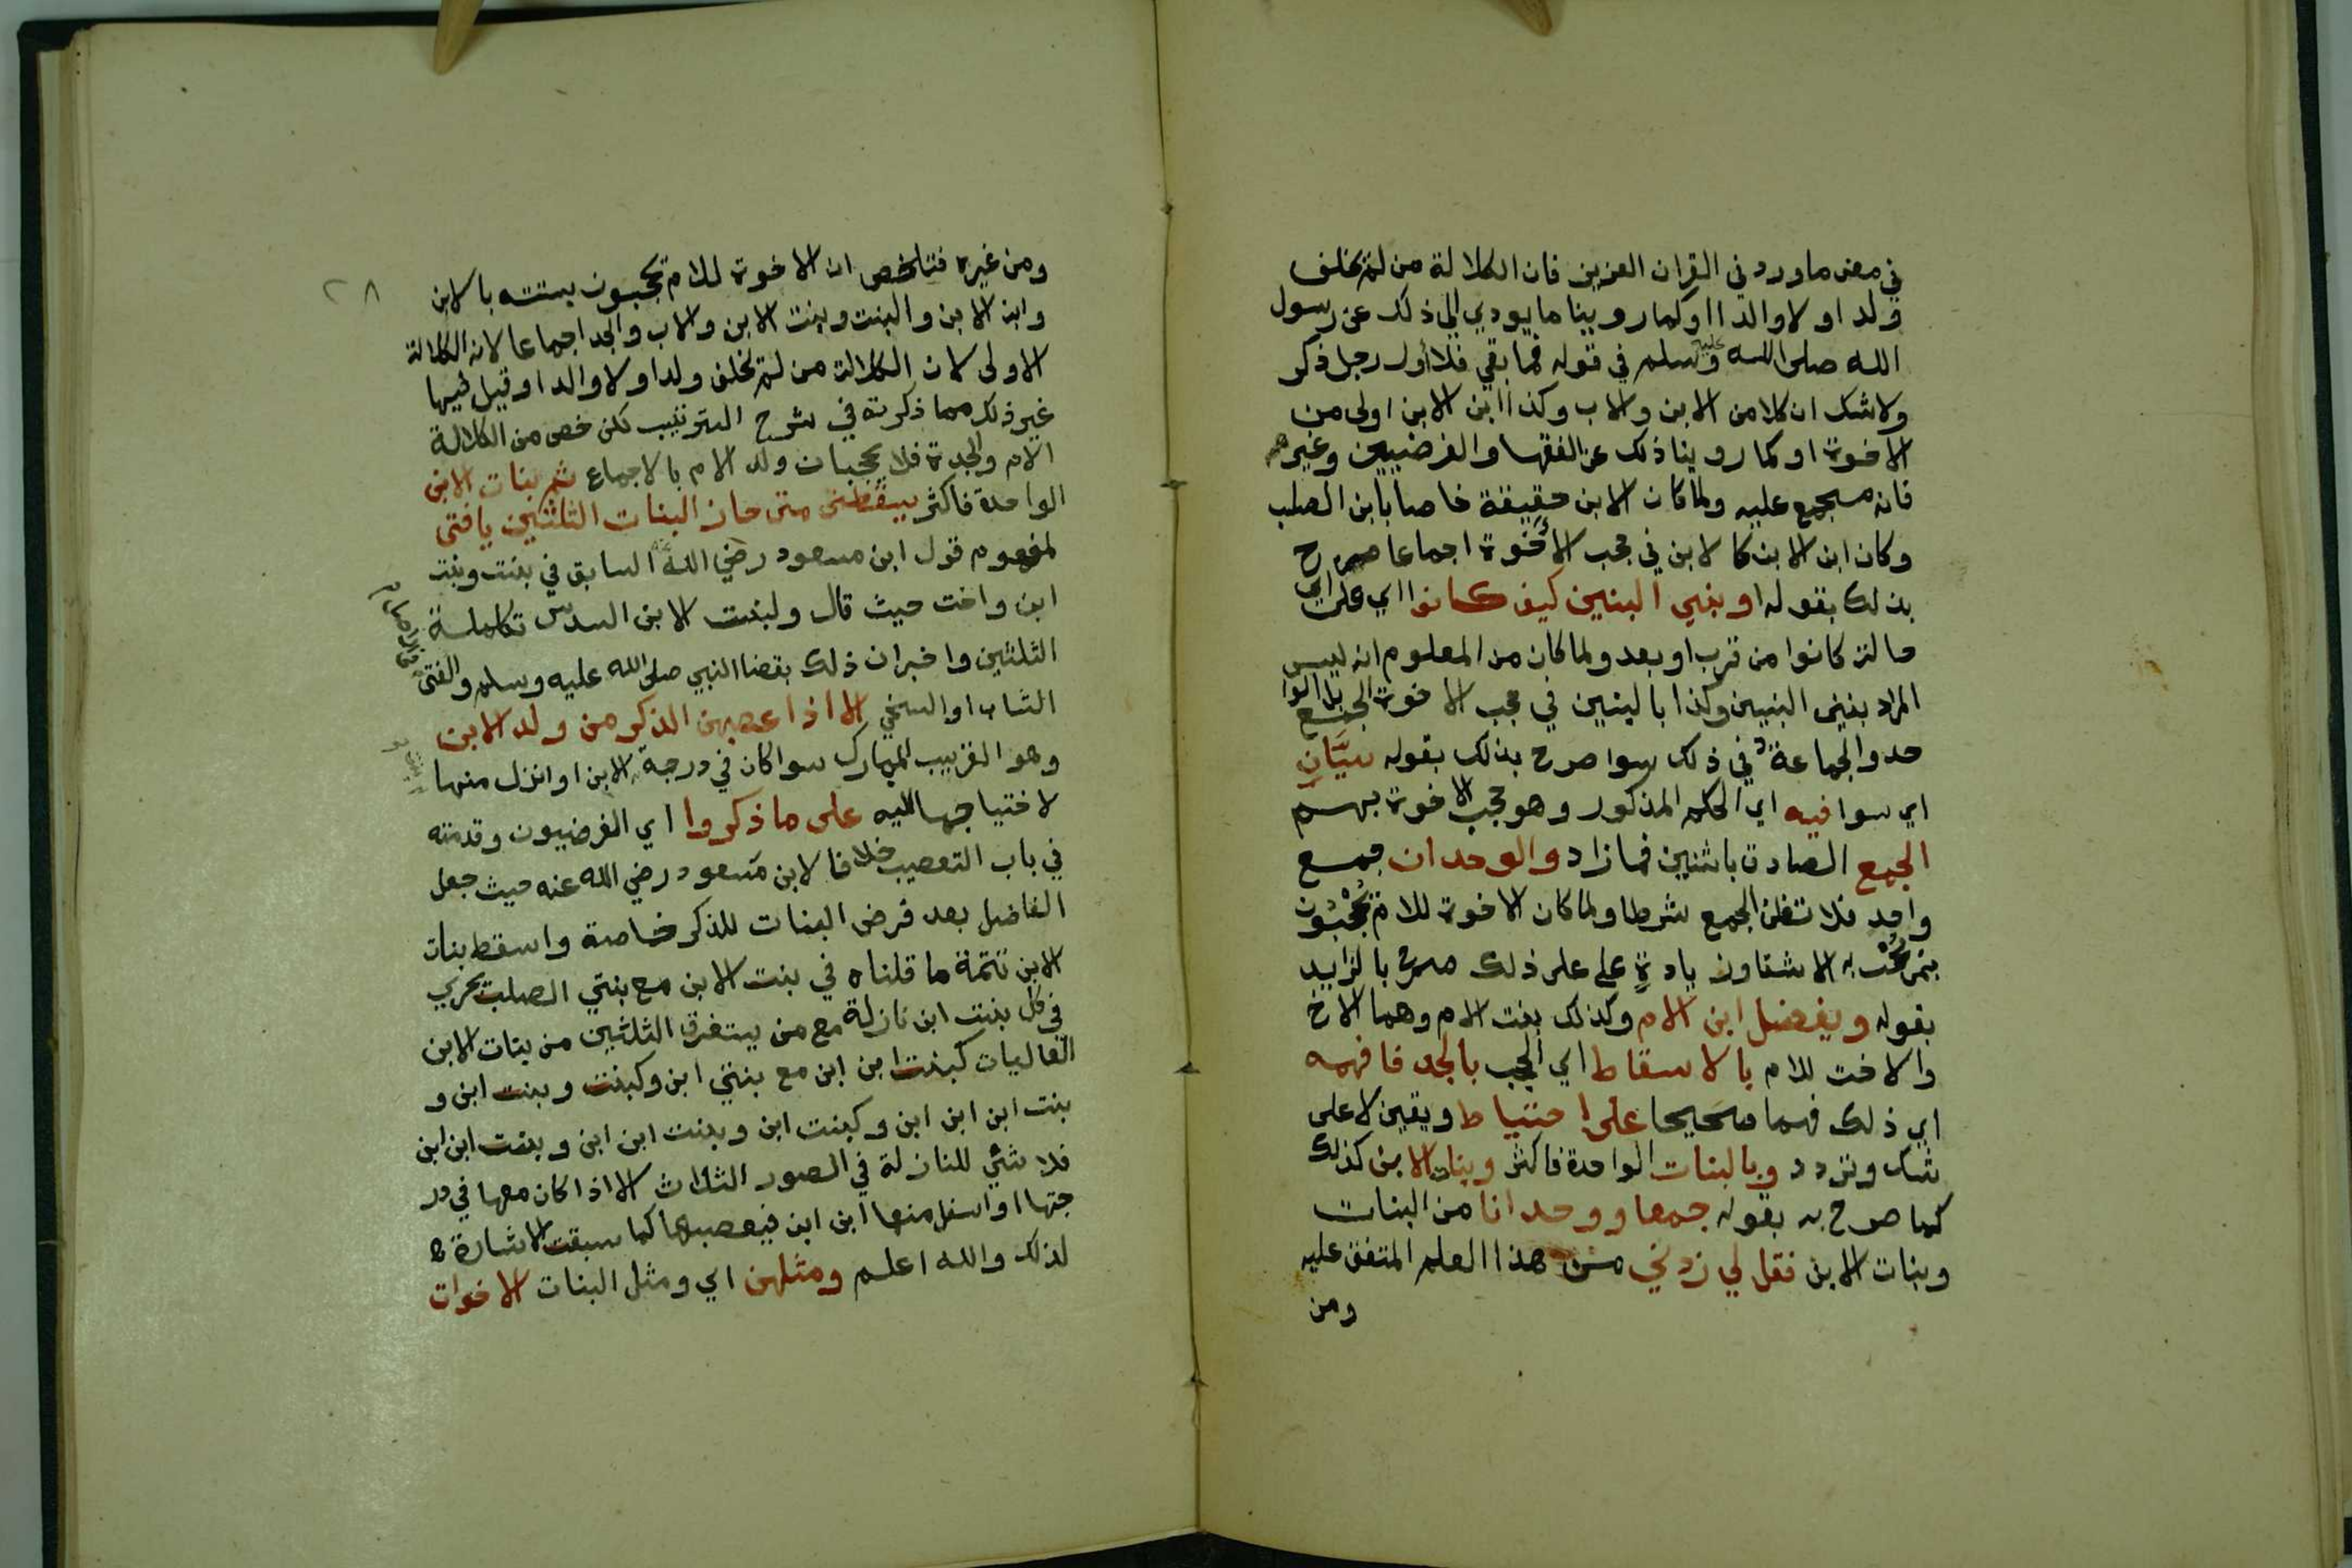 في معنى ما ورد في القران العزيز فان الكلالة من لم يخلف
ولدا ولا والدا او كما روينا ما يودي الى ذلك عن رسول
الله صلى الله عليه وسلم في قوله فما بقي فلأولى رجل ذكر
ولا شك ان كلا من الابن والاب وكذا ابن الابن اولى من
الاخوة او كما روينا ذلك عن الفقها والفرضيين وغيرهم
فانه مجمع عليه ولما كان الابن حقيقة خاصا بابن الصلب
وكان ابن الابن كالابن في حجب الأخوة اجماعا صرح
بذلك بقوله او ببني البنين كيف كانوا اي على اي
حالة كانوا من قرب او بعد ولما كان من المعلوم انه ليس
المراد ببني البنين وكذا بالبنين في حجب الاخوة الجمع بل الوا
حد والجماعة في ذلك سوا صرح بذلك بقوله سيَّانِ
اي سوا فيه اي الحكم المذكور وهو حجب الاخوة بهم
الجمع الصادق باثنين فما زاد والوحدان جمع
واحد فلا تظن الجمع شرطا ولما كان الاخوة للام يُحْجَبُون
بمن يُحْجب به الاشقا وزيادةٍ على ذلك صرح بالزايد
بقوله ويفضل ابن الام وكذلك بنت الام وهما الاخ
والاخت للام بالاسقاط اي الحجب بالجد فافهمه
اي ذلك فهما صَحيحا على احتياط ويقين لا على
شك وتردد وبالبنات الواحدة فاكثر وبنات الابن كذلك
كما صرح به بقوله جمعا ووحدانا من البنات
وبنات الابن فقل لي زدني من هذا العلم المتفق عليه
ومن
٢٨
ومن غيره فتلخص ان الاخوة للام يحجبون بستة بالابن
وابن الابن والبنت وبنت الابن والاب والجد اجماعا لانه الكلالة
الاولى لان الكلالة من لم يخلف ولدا ولا والدا وقيل فيها
غير ذلك مما ذكرته في شرح الترتيب لكن خص من الكلالة
الام والجدة فلا يحجبان ولد الام بالاجماع ثم بنات الابن
الواحدة فاكثر يسقطن متى حاز البنات الثلثين يا فتى
لمفهوم قول ابن مسعود رضي الله عنه السابق في بنت وبنت
ابن واخت حيث قال ولبنت الابن السدس تكملة
الثلثين واخبر ان ذلك بقضا النبي صلى الله عليه وسلم والفتى
الشاب او السخي الا اذا عصبهن الذكر من ولد الابن
وهو القريب المبارك سوا كان في درجة الابن او انزل منها
لاحتياجها اليه على ما ذكروا اي الفرضيون وقدمته
في باب التعصيب خلافا لابن مسعود رضي الله عنه حيث جعل
الفاضل بعد فرض البنات للذكر خاصة واسقط بنات
الابن تتمة ما قلناه في بنت الابن مع بنتي الصلب يجري
في كل بنت ابن نازلة مع من يستغرق الثلثين من بنات الابن
العاليات كبنت ابن ابن مع بنتي ابن وكبنت وبنت ابن و
بنت ابن ابن ابن وكبنت ابن وبنت ابن ابن وبنت ابن ابن
فلا شئي للنازلة في الصور الثلاث الا اذا كان معها في در
جتها او اسفل منها ابن ابن فيعصبها كما سبقت الاشارة
لذلك والله اعلم ومثلهن اي ومثل البنات الاخوات